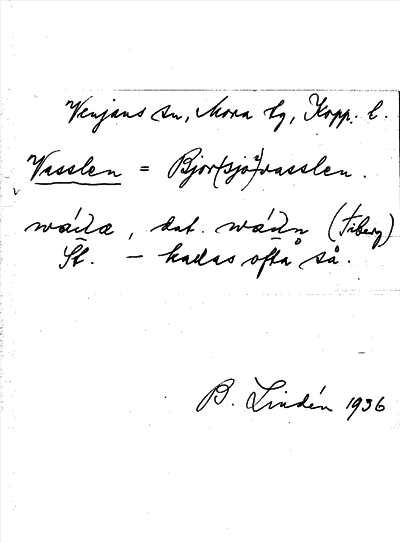 Venjans sn, Mora tg, Kopp. l.
Vasslen = Bjor(sjö)vasslen.
dat. (Fiberg)
St. – kallas ofta så.
B. Lindén 1936